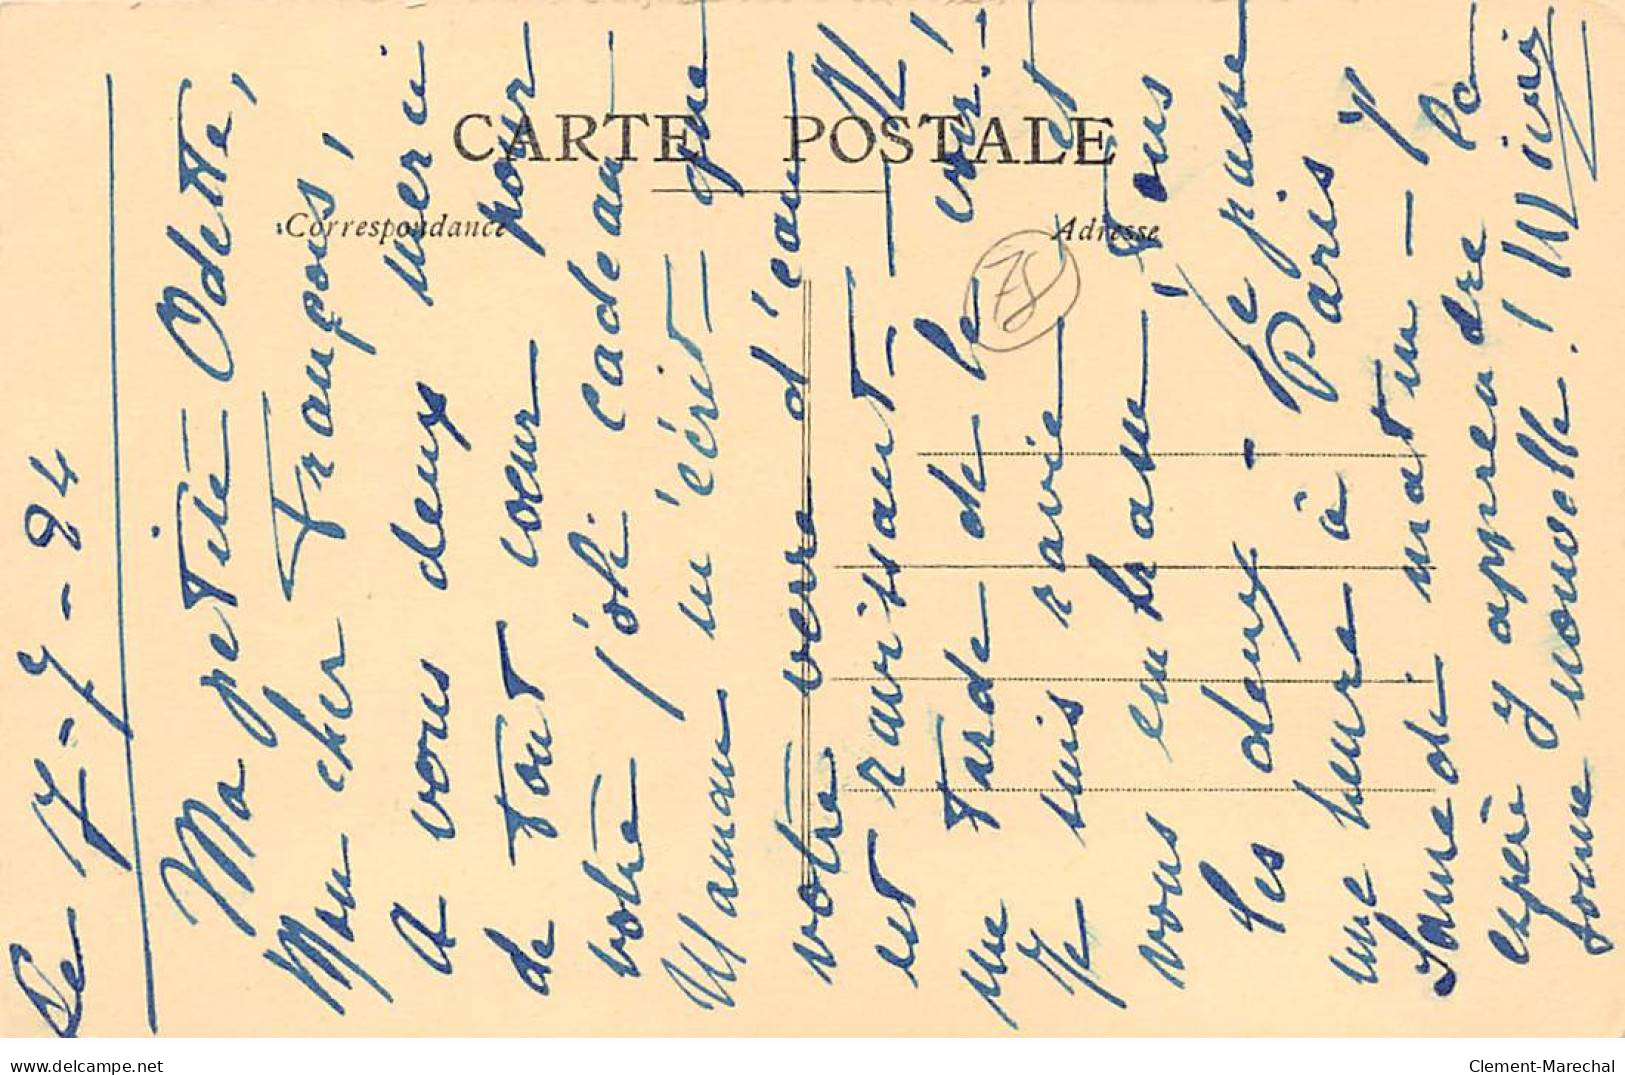 CARTE POSTALE
Correspondance
Adresse
78
Le 17-7-24
Ma petite Odette,
Mon cher François,
A vous deux merci
de tout cœur pour
votre joli cadeau
Maman m'écrit que
votre verre d'eau
est ravissant et
me tarde de le voir!
Je suis ravie et
vous embrasse tous
les deux - Je passe
une heure à Paris
Samedi matin - J'
espère y apprendre la
bonne nouvelle!
www.delcampe.net
Clement-Marechal